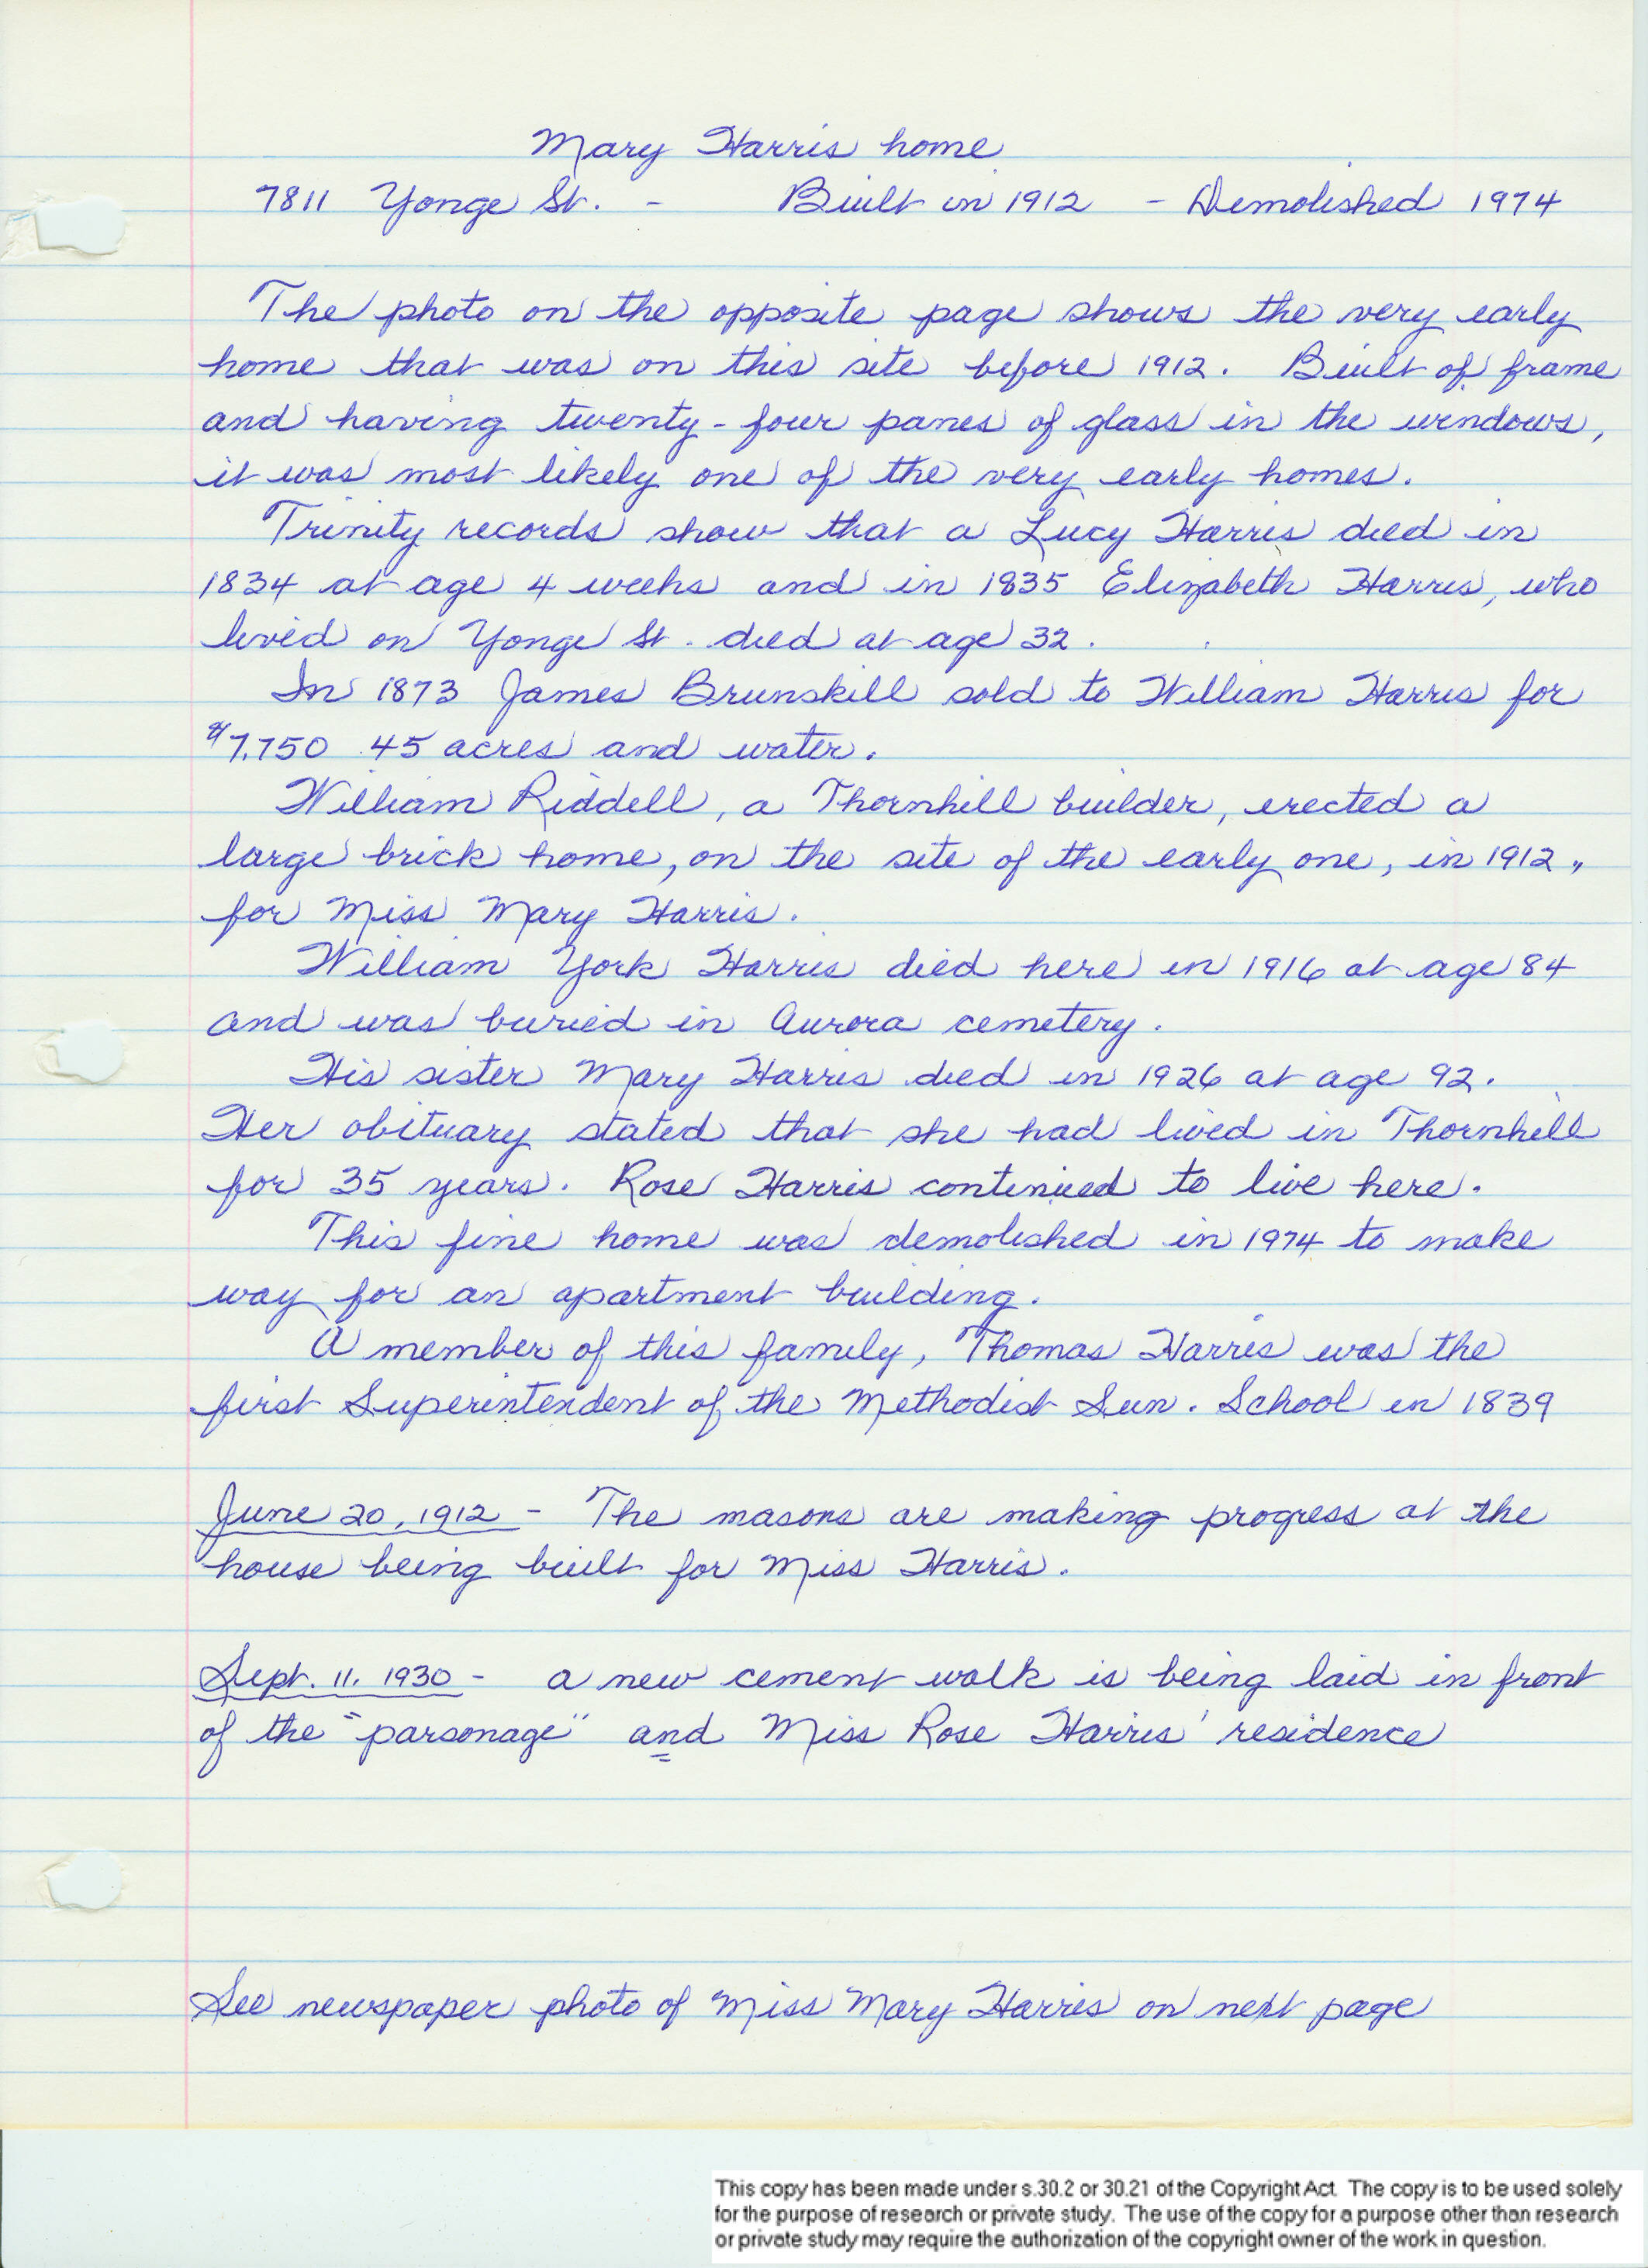 Mary Harris home
7811 Yonge St. - Built in 1912 - Demolished 1974
The photo on the opposite page shows the very early
home that was on this site before 1912. Built of frame
and having twenty-four panes of glass in the windows,
it was most likely one of the very early homes.
Trinity records show that a Lucy Harris died in
1834 at age 4 weeks and in 1835 Elizabeth Harris, who
lived on Yonge St. died at age 32.
In 1873 James Brunskill sold to William Harris for
$7,750 45 acres and water.
William Riddell, a Thornhill builder, erected a
large brick home, on the site of the early one, in 1912,
for Miss Mary Harris.
William York Harris died here in 1916 at age 84
and was buried in Aurora cemetery.
His sister Mary Harris died in 1926 at age 92.
Her obituary stated that she had lived in Thornhill
for 35 years. Rose Harris continued to live here.
This fine home was demolished in 1974 to make
way for an apartment building.
A member of this family, Thomas Harris was the
first Superintendent of the Methodist Sun. School in 1839
June 20, 1912 - The masons are making progress at the
house being built for Miss Harris.
Sept. 11, 1930 - a new cement walk is being laid in front
of the "parsonage" and Miss Rose Harris' residence
See newspaper photo of Miss Mary Harris on next page
This copy has been made under s.30.2 or 30.21 of the Copyright Act. The copy is to be used solely
for the purpose of research or private study. The use of the copy for a purpose other than research
or private study may require the authorization of the copyright owner of the work in question.